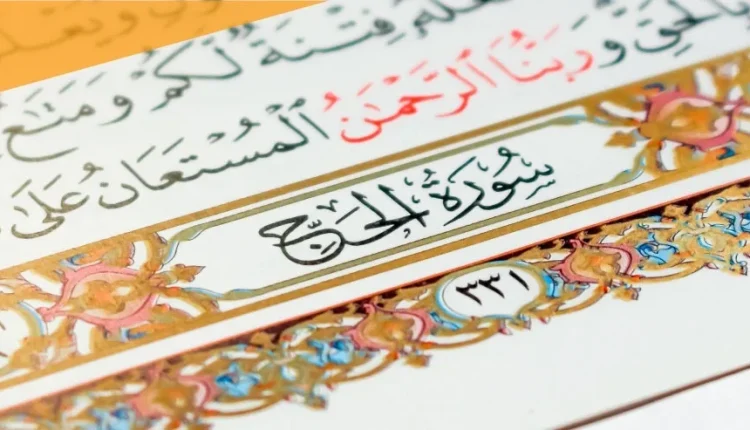 وَيَعْلَمُ
فِتْنَةٌ لَّكُمْ وَمَتَٰعٌ
وَرَبُّنَا ٱلرَّحْمَٰنُ ٱلْمُسْتَعَانُ عَلَىٰ
سُورَةُ الحَجِّ
٣٣١